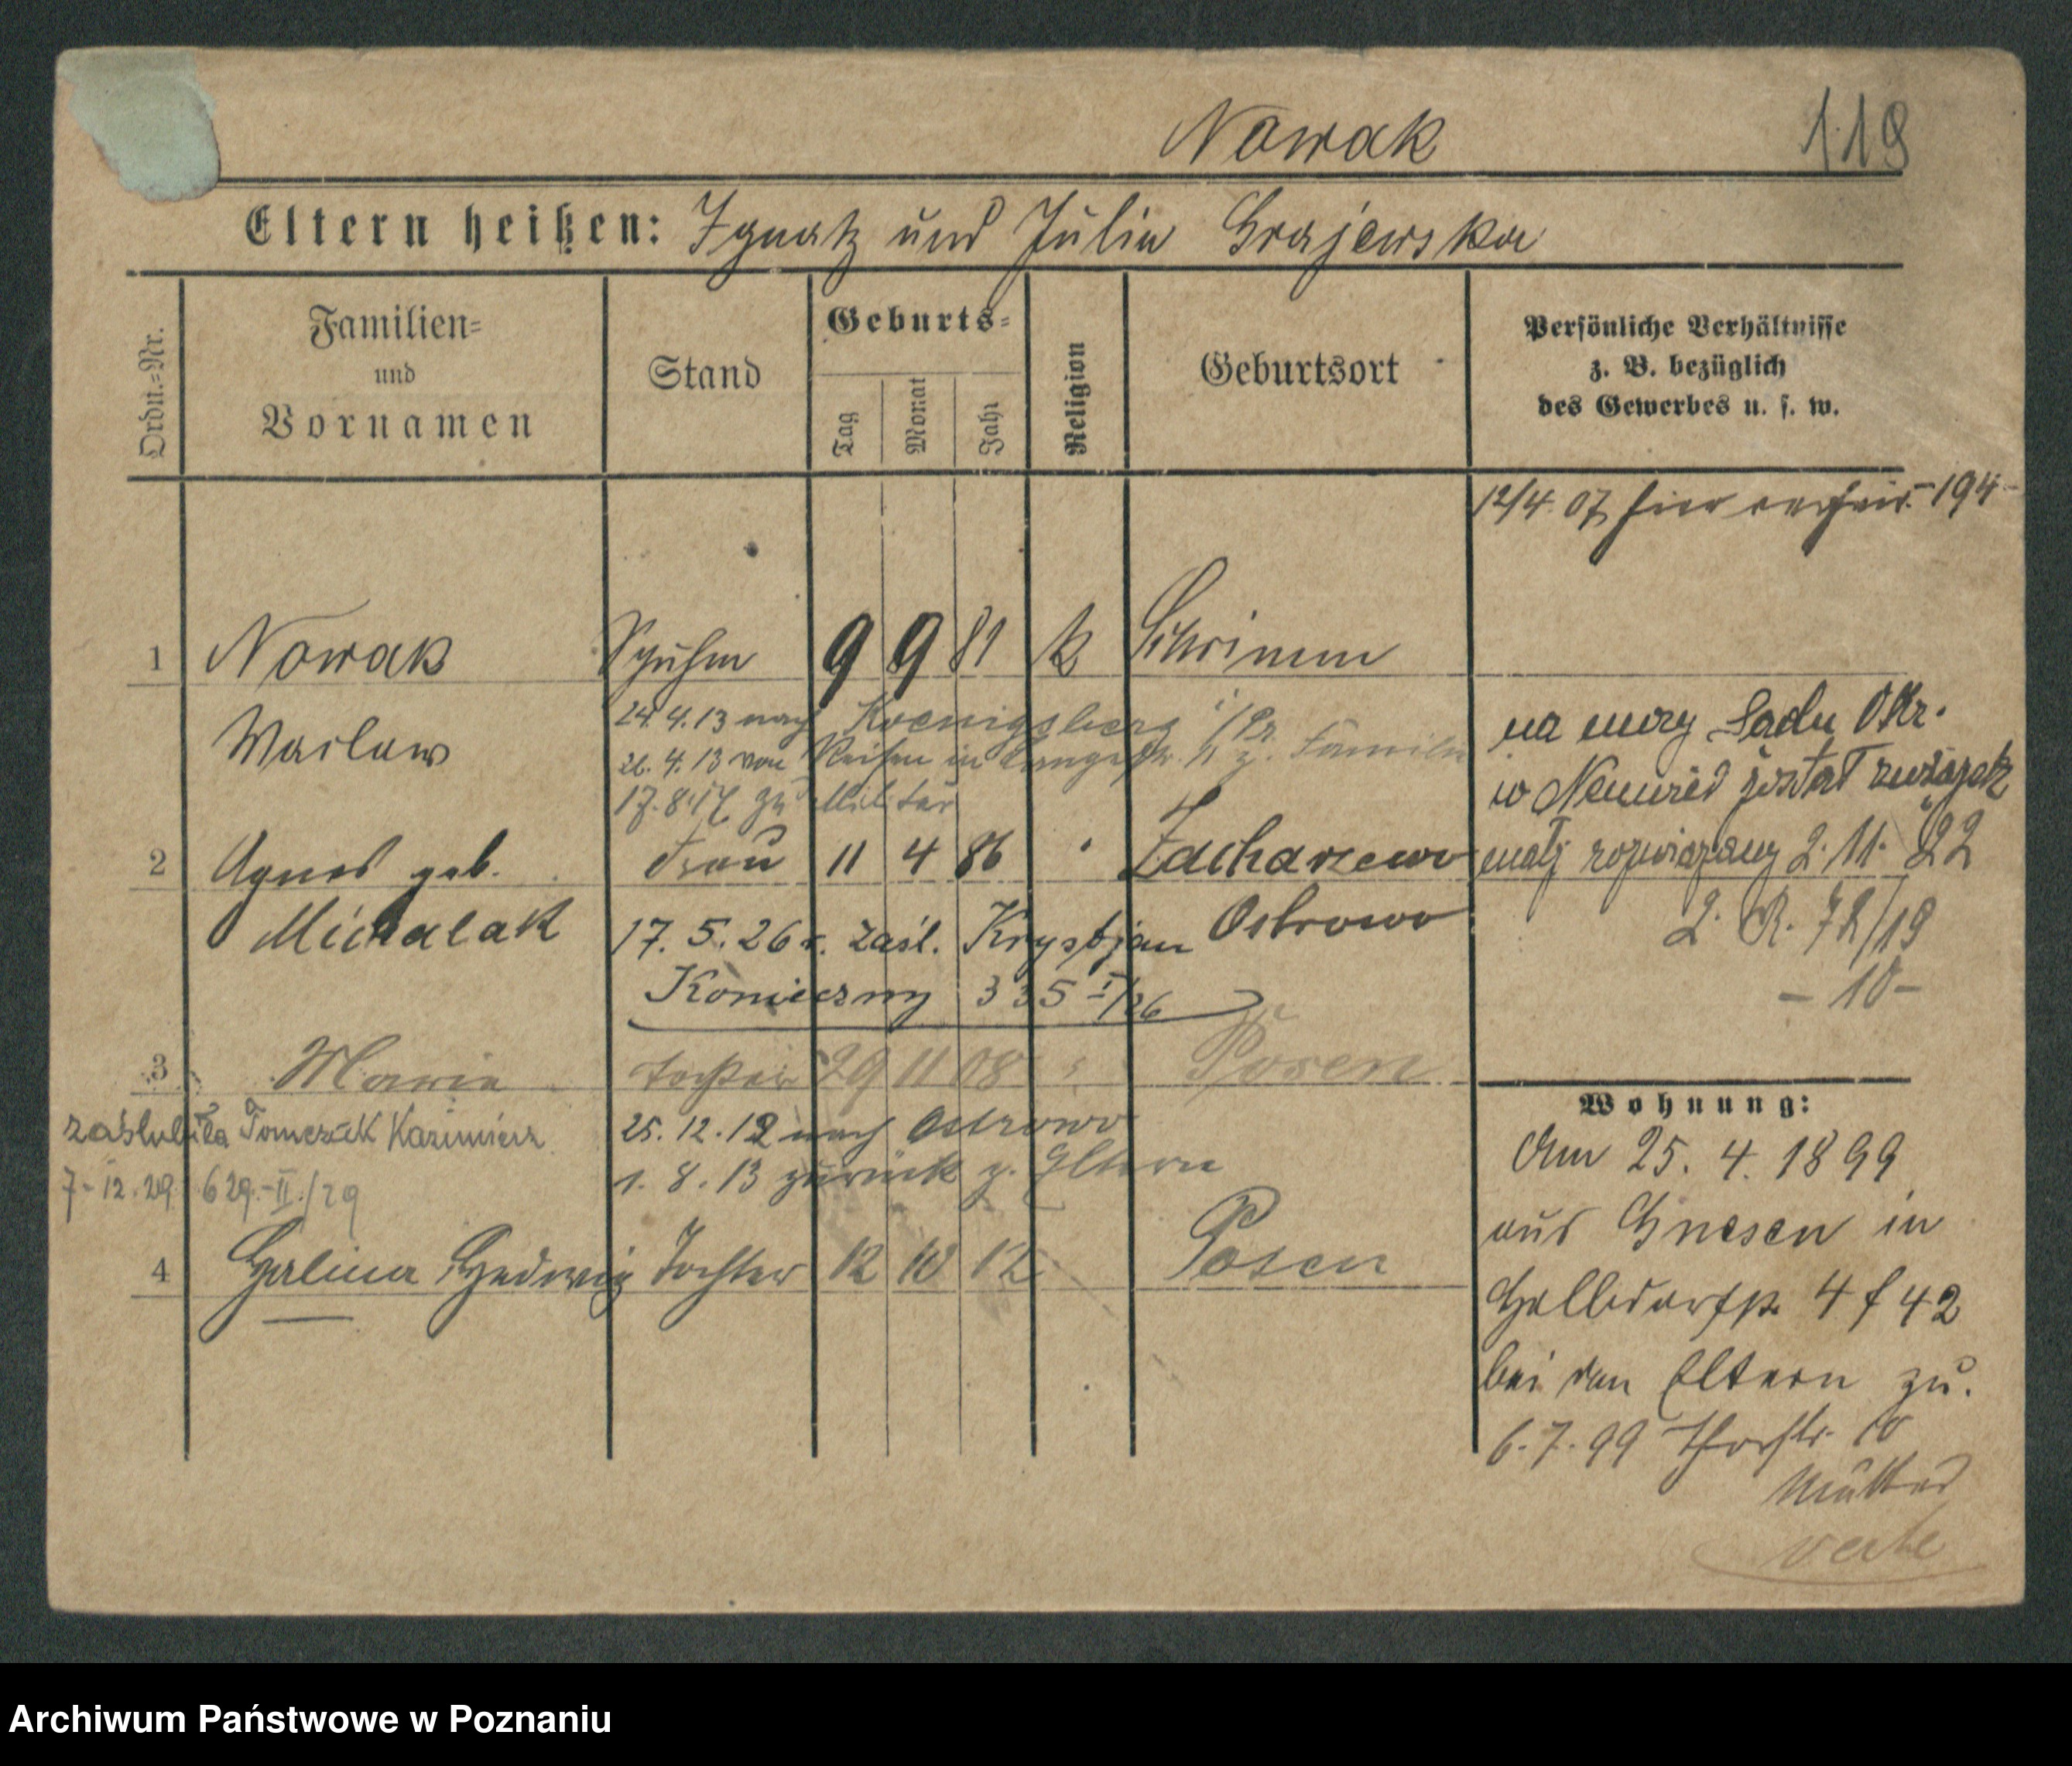 Nowak
118
Eltern heißen: Ignatz und Julia Grajewska
Ordn.=Nr.
Familien=
und
Vornamen
Stand
Geburts=
Tag
Monat
Jahr
Religion
Geburtsort
Persönliche Verhältnisse
z. B. bezüglich
des Gewerbes u. s. w.
12/4. 07 hier 194
1 Nowak 9 9 81 k Schrimm
Waclaw
24. 4. 13 nach Koenigsberg i/Pr.
21. 4. 13 von Reisen in z. Familie
17. 8. 17 zu Militär
na mocy Sadu Okr.
w Neuwied został związek
małż rozwiązany 2. 11. 22
2. R. 72/19
- 10 -
2 Agnes geb. Frau 11 4 86 Zacharzewo
Michalak Ostrowo
17. 5. 26 r. zaśl. Krystjan
Konieczny 335 I/26
3 Maria Tochter 29 11 08 Posen
zaślubiła Tomczak Kazimierz
7-12.29 629-II/29
25. 12. 12 nach Ostrowo
1. 8. 13 zurück z. Eltern
4 Halina Hedwig Tochter 12 10 12 Posen
Wohnung:
Am 25. 4. 1899
aus Gnesen in
4 f 42
bei den Eltern zu.
6. 7. 99 Thorstr. 10
verte
Archiwum Państwowe w Poznaniu